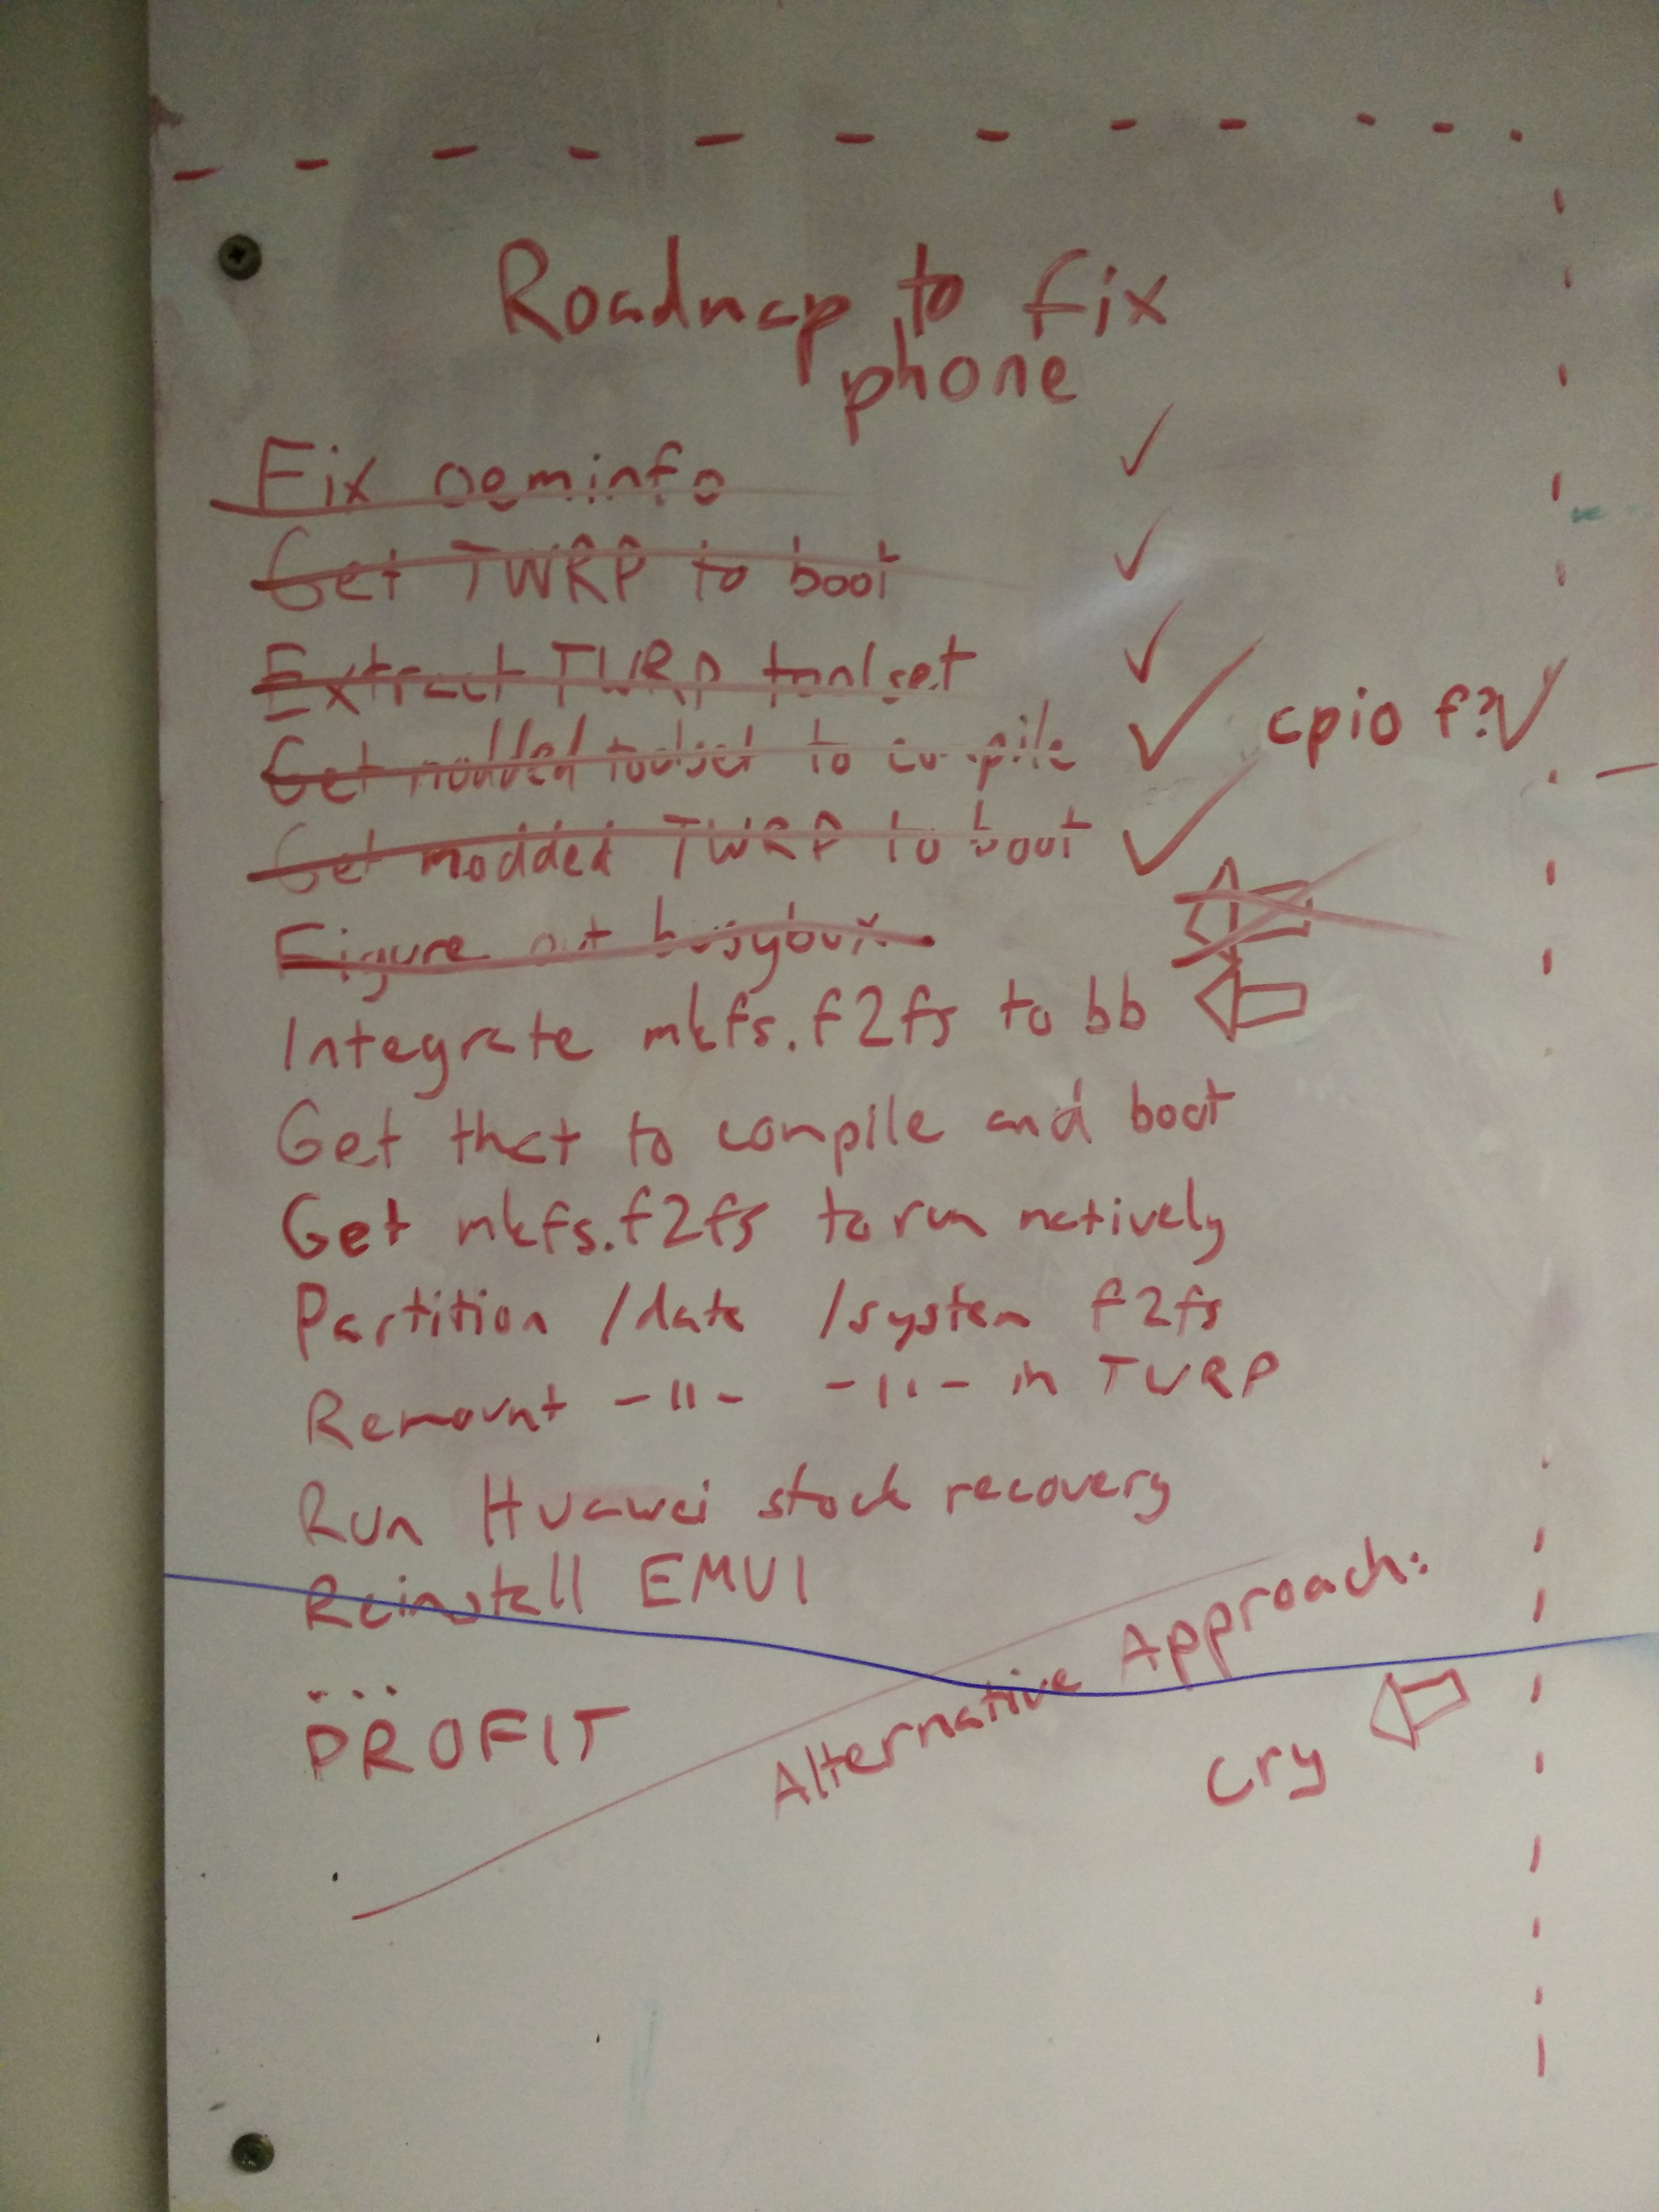 Roadmap to fix
phone
Fix oeminfo ✓
Get TWRP to boot ✓
Extract TWRP toolset ✓
Get modded toolset to compile ✓ cpio f? ✓
Get modded TWRP to boot ✓
Figure out busybox
Integrate mkfs.f2fs to bb
Get that to compile and boot
Get mkfs.f2fs to run natively
Partition /data /system f2fs
Remount -11- -11- in TWRP
Run Huawei stock recovery
Reinstall EMUI
...
PROFIT
Alternative Approach:
cry